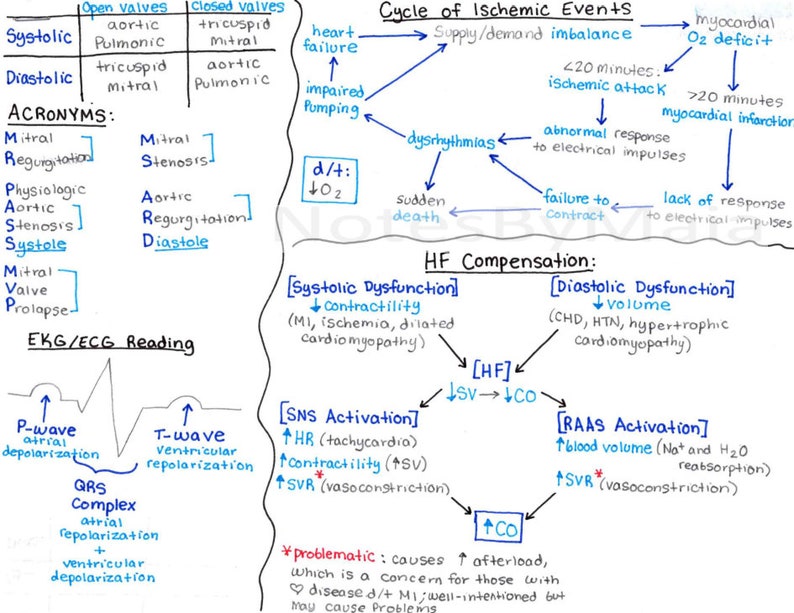 Open valves
Closed valves
Systolic
aortic
Pulmonic
tricuspid
mitral
Diastolic
tricuspid
mitral
aortic
Pulmonic
ACRONYMS:
Mitral
Regurgitation
Mitral
Stenosis
Physiologic
Aortic
Stenosis
Systole
Aortic
Regurgitation
Diastole
Mitral
Valve
Prolapse
EKG/ECG Reading
P-wave
atrial
depolarization
T-wave
ventricular
repolarization
QRS
Complex
atrial
repolarization
+
ventricular
depolarization
Cycle of Ischemic Events
heart
failure
Supply/demand imbalance
myocardial
O2 deficit
<20 minutes:
ischemic attack
>20 minutes
myocardial infarction
impaired
Pumping
dysrhythmias
abnormal response
to electrical impulses
d/t:
↓O2
sudden
death
failure to
contract
lack of response
to electrical impulses
NotesByMaia
HF Compensation:
[Systolic Dysfunction]
↓contractility
(MI, ischemia, dilated
cardiomyopathy)
[Diastolic Dysfunction]
↓volume
(CHD, HTN, hypertrophic
cardiomyopathy)
[HF]
↓SV → ↓CO
[SNS Activation]
↑HR (tachycardia)
↑contractility (↑SV)
↑SVR* (vasoconstriction)
[RAAS Activation]
↑blood volume (Na+ and H2O
reabsorption)
↑SVR* (vasoconstriction)
↑CO
*problematic: causes ↑ afterload,
which is a concern for those with
♡ disease d/t MI; well-intentioned but
may cause problems